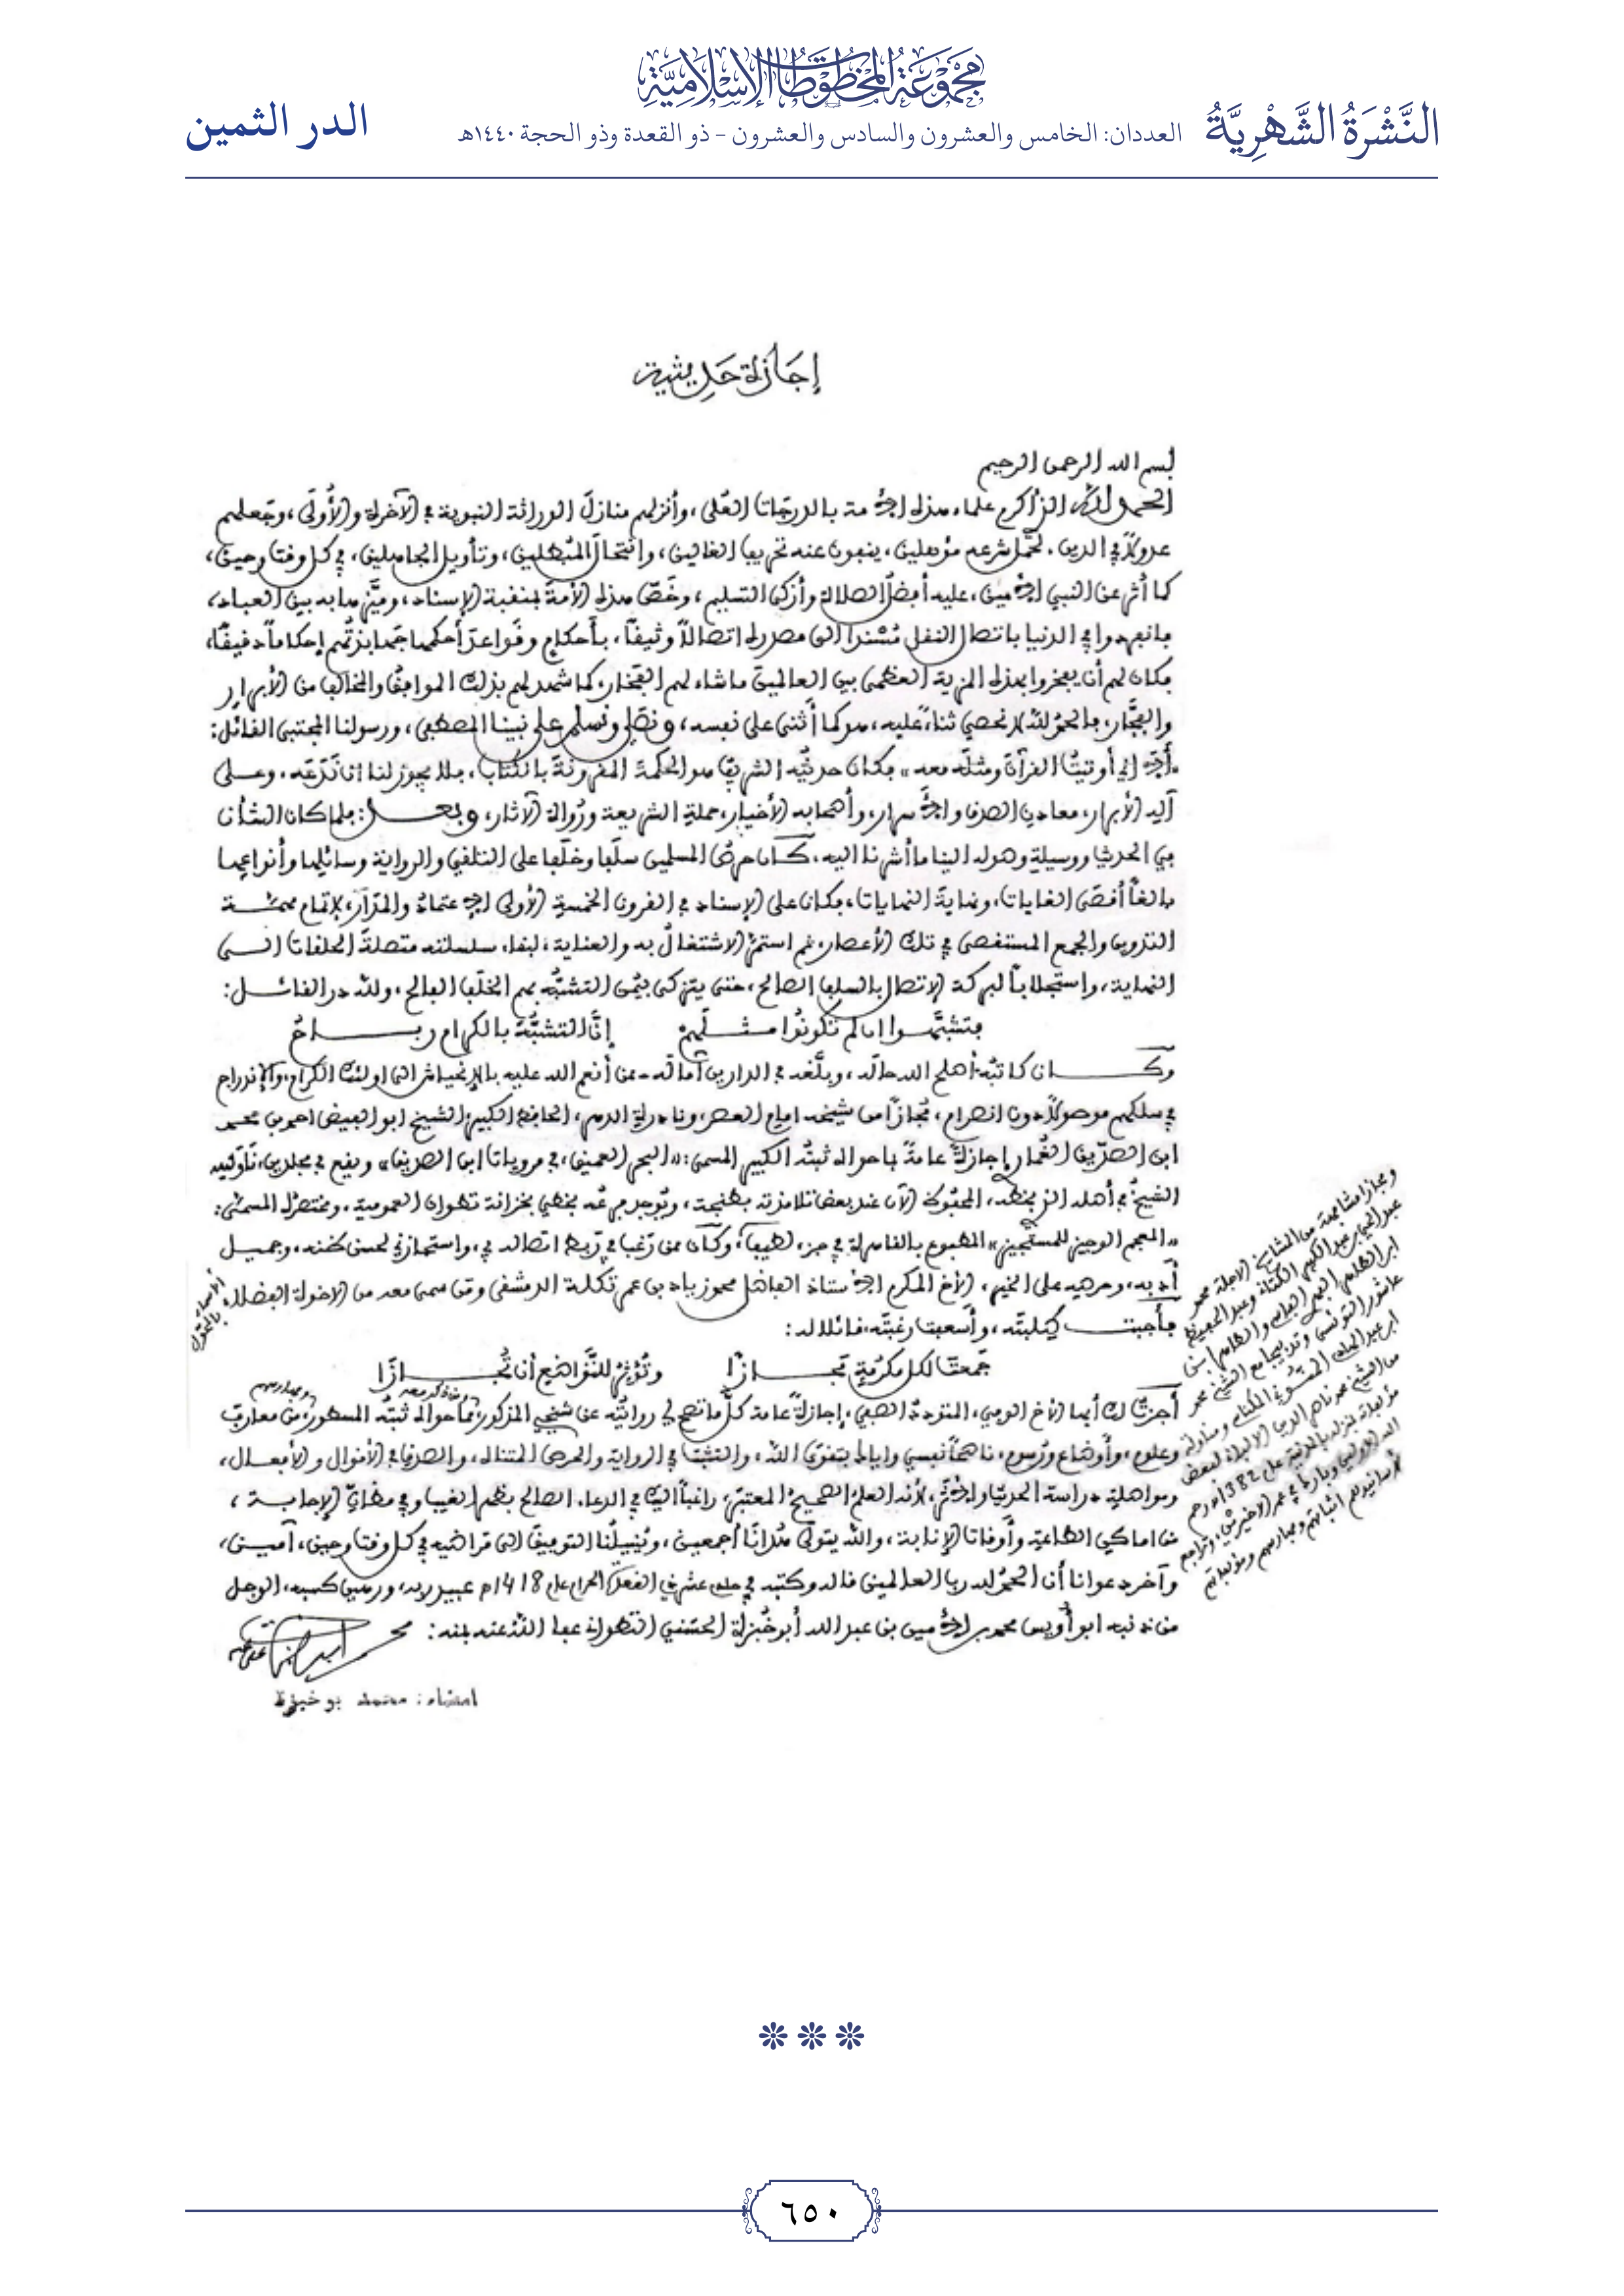 مَجْمُوعَةُ المَخْطُوطَاتِ الإِسْلَامِيَّةِ
النَّشْرَةُ الشَّهْرِيَّةُ
العددان: الخامس والعشرون والسادس والعشرون - ذو القعدة وذو الحجة ١٤٤٠هـ
الدر الثمين
إجازة حديثية
بسم الله الرحمن الرحيم
الحمد لله الذي أكرم علماء هذه الأمة بالدرجات العُلى، وأنزلهم منازل الوراثة النبوية في الآخرة والأُولَى، وجَعلهم
عدولاً في الدين، لحَمْل شرعه مؤهلين، ينفون عنه تحريف الغالين، وانتحالَ المُبطلين، وتأويل الجاهلين، في كل وقت وحين،
كما أُثر عن النبي الأمين، عليه أفضلُ الصلاة وأزكى التسليم، وخَصَّ هذه الأمةَ بمنقبة الإسناد، وميَّزها به بين العباد،
فانفردوا في الدنيا باتصال النقل مُسْنداً إلى مصدره اتصالاً وثيقاً، بأحكامٍ وقواعدَ أحكمها جهابذتُهم إحكاماً دقيقًا،
فكان لهم أن يفخروا بهذه المزية العظمى بين العالمين ما شاء لهم الفَخار، كما شهد لهم بذلك الموافقُ والمخالف من الأبرار
والفجَّار، فالحمدُ لله لا نحصي ثناءً عليه، هو كما أثنى على نفسه، ونصلي ونسلم على نبينا المصطفى، ورسولنا المجتبى القائل:
«ألا إني أوتيتُ القرآنَ ومثلَه معه» فكان حديثُه الشريف هو الحكمةَ المقرونةَ بالكتاب، فلا يجوز لنا أن نَدَعَه، وعلى
آله الأبرار، معادن الصدق والأسرار، وأصحابه الأخيار، حملةِ الشريعة ورُواة الآثار، وبعد: فلما كان الشأن
في الحديث ووسيلةِ وصوله إلينا ما أشرنا إليه، كان حرصُ المسلمين سلَفا وخلَفا على التلقي والرواية وسائلها وأنواعها
بالغاً أقصَى الغايات، ونهايةَ النهايات، فكان على الإسناد في القرون الخمسة الأولى الاعتمادُ والمَدَار، لإتمام مهمة
التدوين والجمع المستقصى في تلك الأعصار، ثم استمرَّ الاشتغالُ به والعناية، لبقاء سلسلته متصلةَ الحلقات إلى
النهاية، واستجلاباً لبركة الاتصال بالسلف الصالح، حتى يتزكى بيُمْن التشبُّه بهم الخلَف الفالح، ولله در القائل:
فتشبَّهوا إن لم تكونُوا مثلَهم إنَّ التشبُّهَ بالكرام رباحُ
وكان كاتبُه أصلح الله حالَه، وبلَّغه في الدارين آمالَه - ممن أنعم الله عليه بالانحياش إلى أولئك الكرام، والاندراج
في سلكهم موصولاً دون انصرام، مُجازاً من شيخه إمام العصر، ونادرة الدهر، الحافظ الكبير الشيخ أبو الفيض أحمد بن محمد
ابن الصدّيق الغُمَاري إجازةً عامةً بما حواه ثبتُه الكبير المسمى: «البحر العميق، في مرويات ابن الصديق» ويقع في مجلدين، ناوَلنيه
الشيخُ في أصله الذي بخطه، المحفوظ الآن عند بعض تلامذته بطنجة، وتُوجد فرعُه بخطي بخزانة تطوان العمومية، ومختصرُه المسمَّى:
«المعجم الوجيز للمستجيز» المطبوع بالقاهرة في جزء لطيف، وكان ممن رَغب في رَبط اتصاله بي، واستجازني لحسن ظنه، وجميل
أدبه، وحرصه على الخير، الأخ المكرم الأستاذ الفاضل محمد زياد بن عمر تكلة الدمشقي ومن سمى معه من الإخوة الفضلاء
فأجبت طِلبتَه، وأسعفت رغبتَه، قائلا له:
جَمعتَ لكل مكرُمَةٍ مَجازًا وتُؤثِرُ للتَّواضُعِ أن تُجازَا
أجزتُ لك أيها الأخ الوفي، المتودد الصفي، إجازةً عامة كلَّ ما تصح لي روايتُه عن شيخي المذكور، مما حواه ثبتُه المسطور، من معارف
وعلوم، وأوضاع ورُسوم، ناصحاً نفسي وإياك بتقوى الله، والتثبت في الرواية والحرص المتناه، والصدق في الأقوال والأفعال،
ومواصلة دراسة الحديث والأثر، لأنه العلم الصحيحُ المعتبَر، راغباً إليك في الدعاء الصالح بظهر الغيب وفي مظانِّ الإجابة،
من أماكن الطاعة وأوقات الإنابة، والله يتولى هُدانَا أجمعين، ويُنيلُنا التوفيقَ إلى مَراضيه في كل وقت وحين، آمين،
وآخر دعوانا أن الحمدُ لله رب العالمين قاله وكتبه في حادي عشر ذي القعدة الحرام عام 1418ه‍ عبيد ربه، ورهين كسبه، الوجل
من ذنبه أبو أُويس محمد بن الأمين بن عبد الله أبو خُبزة الحسَني التطواني عفا اللهُ عنه بمنه:
امضاء: محمد بو خبزة
٦٥٠